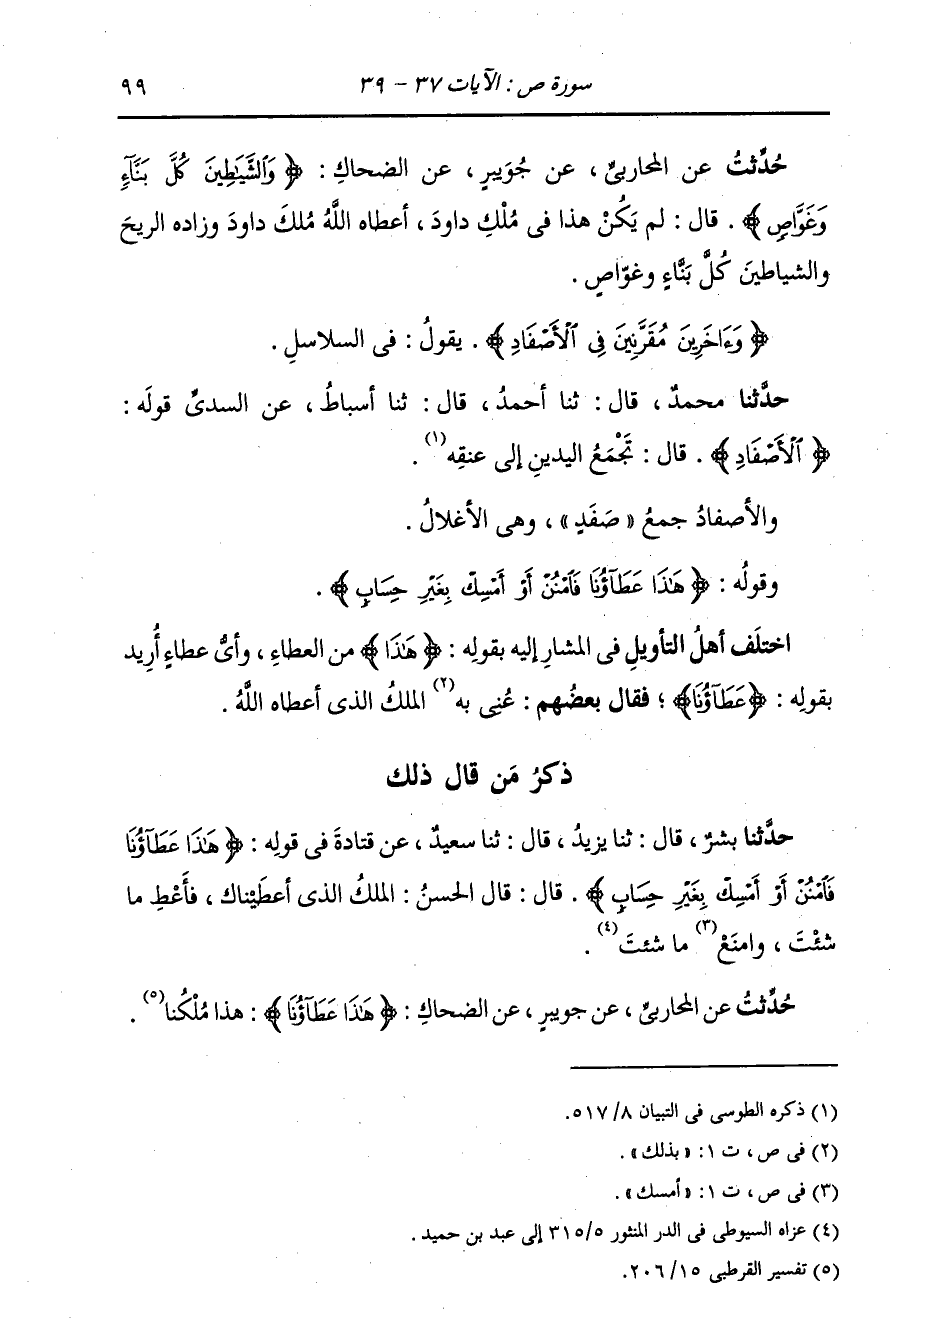 سورة ص : الآيات ٣٧ - ٣٩ ٩٩
حُدِّثتُ عن المحاربىِّ ، عن جُوَيبرٍ ، عن الضحاكِ : ﴿ وَٱلشَّيَٰطِينَ كُلَّ بَنَّآءٍ
وَغَوَّاصٍ ﴾ . قال : لم يَكُنْ هذا فى مُلْكِ داودَ ، أعطاه اللَّهُ مُلكَ داودَ وزاده الريحَ
والشياطينَ كُلَّ بَنَّاءٍ وغوّاصٍ .
﴿ وَءَاخَرِينَ مُقَرَّنِينَ فِى ٱلْأَصْفَادِ ﴾ . يقولُ : فى السلاسلِ .
حدَّثنا محمدٌ ، قال : ثنا أحمدُ ، قال : ثنا أسباطُ ، عن السدىِّ قولَه :
﴿ ٱلْأَصْفَادِ ﴾ . قال : تَجْمَعُ اليدينِ إلى عنقِه(١) .
والأصفادُ جمعُ « صَفَدٍ » ، وهى الأغلالُ .
وقولُه : ﴿ هَٰذَا عَطَآؤُنَا فَٱمْنُنْ أَوْ أَمْسِكْ بِغَيْرِ حِسَابٍ ﴾ .
اختلَف أهلُ التأويلِ فى المشارِ إليه بقولِه : ﴿ هَٰذَا ﴾ من العطاءِ ، وأىُّ عطاءٍ أُرِيد
بقولِه : ﴿ عَطَآؤُنَا ﴾ ؛ فقال بعضُهم : عُنِى به(٢) الملكُ الذى أعطاه اللَّهُ .
ذكرُ مَن قال ذلك
حدَّثنا بشرٌ ، قال : ثنا يزيدُ ، قال : ثنا سعيدٌ ، عن قتادةَ فى قولِه : ﴿ هَٰذَا عَطَآؤُنَا
فَٱمْنُنْ أَوْ أَمْسِكْ بِغَيْرِ حِسَابٍ ﴾ . قال : قال الحسنُ : الملكُ الذى أعطَيْناك ، فأَعْطِ ما
شئْتَ ، وامنَعْ(٣) ما شئتَ(٤) .
حُدِّثتُ عن المحاربىِّ ، عن جويبرٍ ، عن الضحاكِ : ﴿ هَٰذَا عَطَآؤُنَا ﴾ : هذا مُلْكُنا(٥) .
(١) ذكره الطوسى فى التبيان ٨/ ٥١٧.
(٢) فى ص ، ت ١ : « بذلك » .
(٣) فى ص ، ت ١ : « أمسك » .
(٤) عزاه السيوطى فى الدر المنثور ٣١٥/٥ إلى عبد بن حميد .
(٥) تفسير القرطبى ١٥/ ٢٠٦.